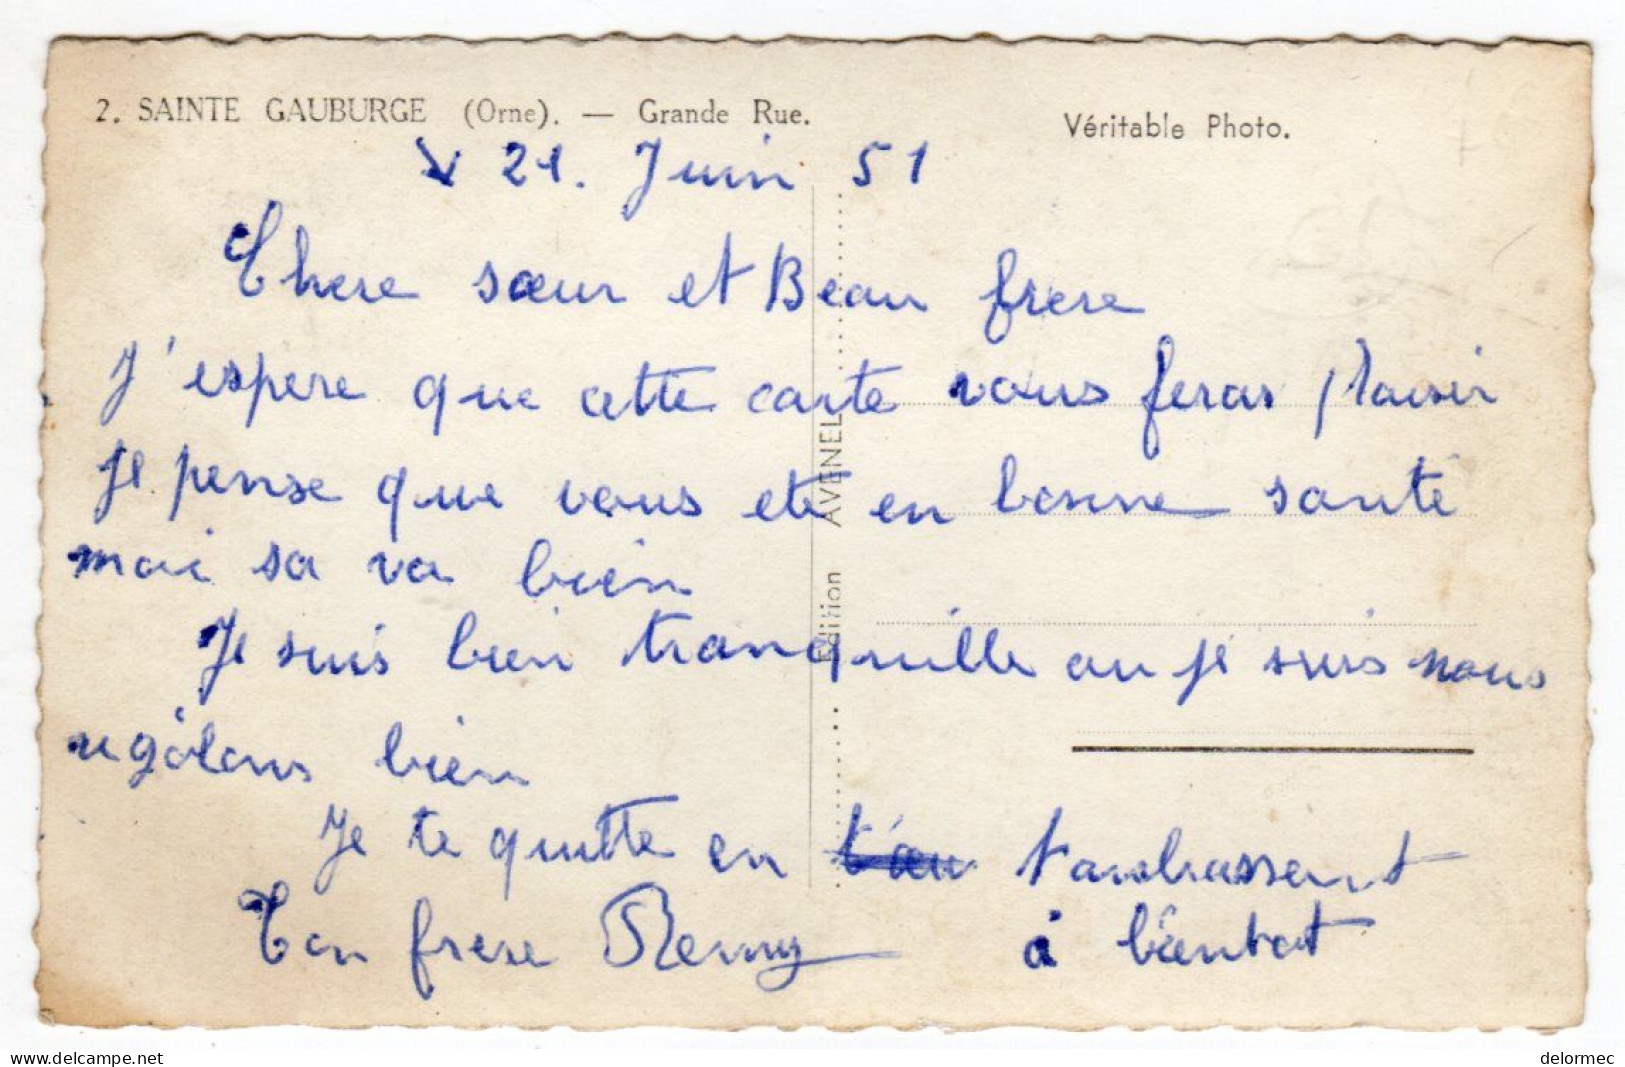 2. SAINTE GAUBURGE (Orne). — Grande Rue.
Véritable Photo.
21. Juin 51
Chere sœur et Beau frere
J'espere que cette carte vous feras plaisir
je pense que vous ete en bonne santé
moi sa va bien
Je suis bien tranquille ou je suis nous
rigolons bien
Je te quitte en t'ambrassent
Ton frere Remy à bientot
Edition AVENEL
www.delcampe.net
delormec